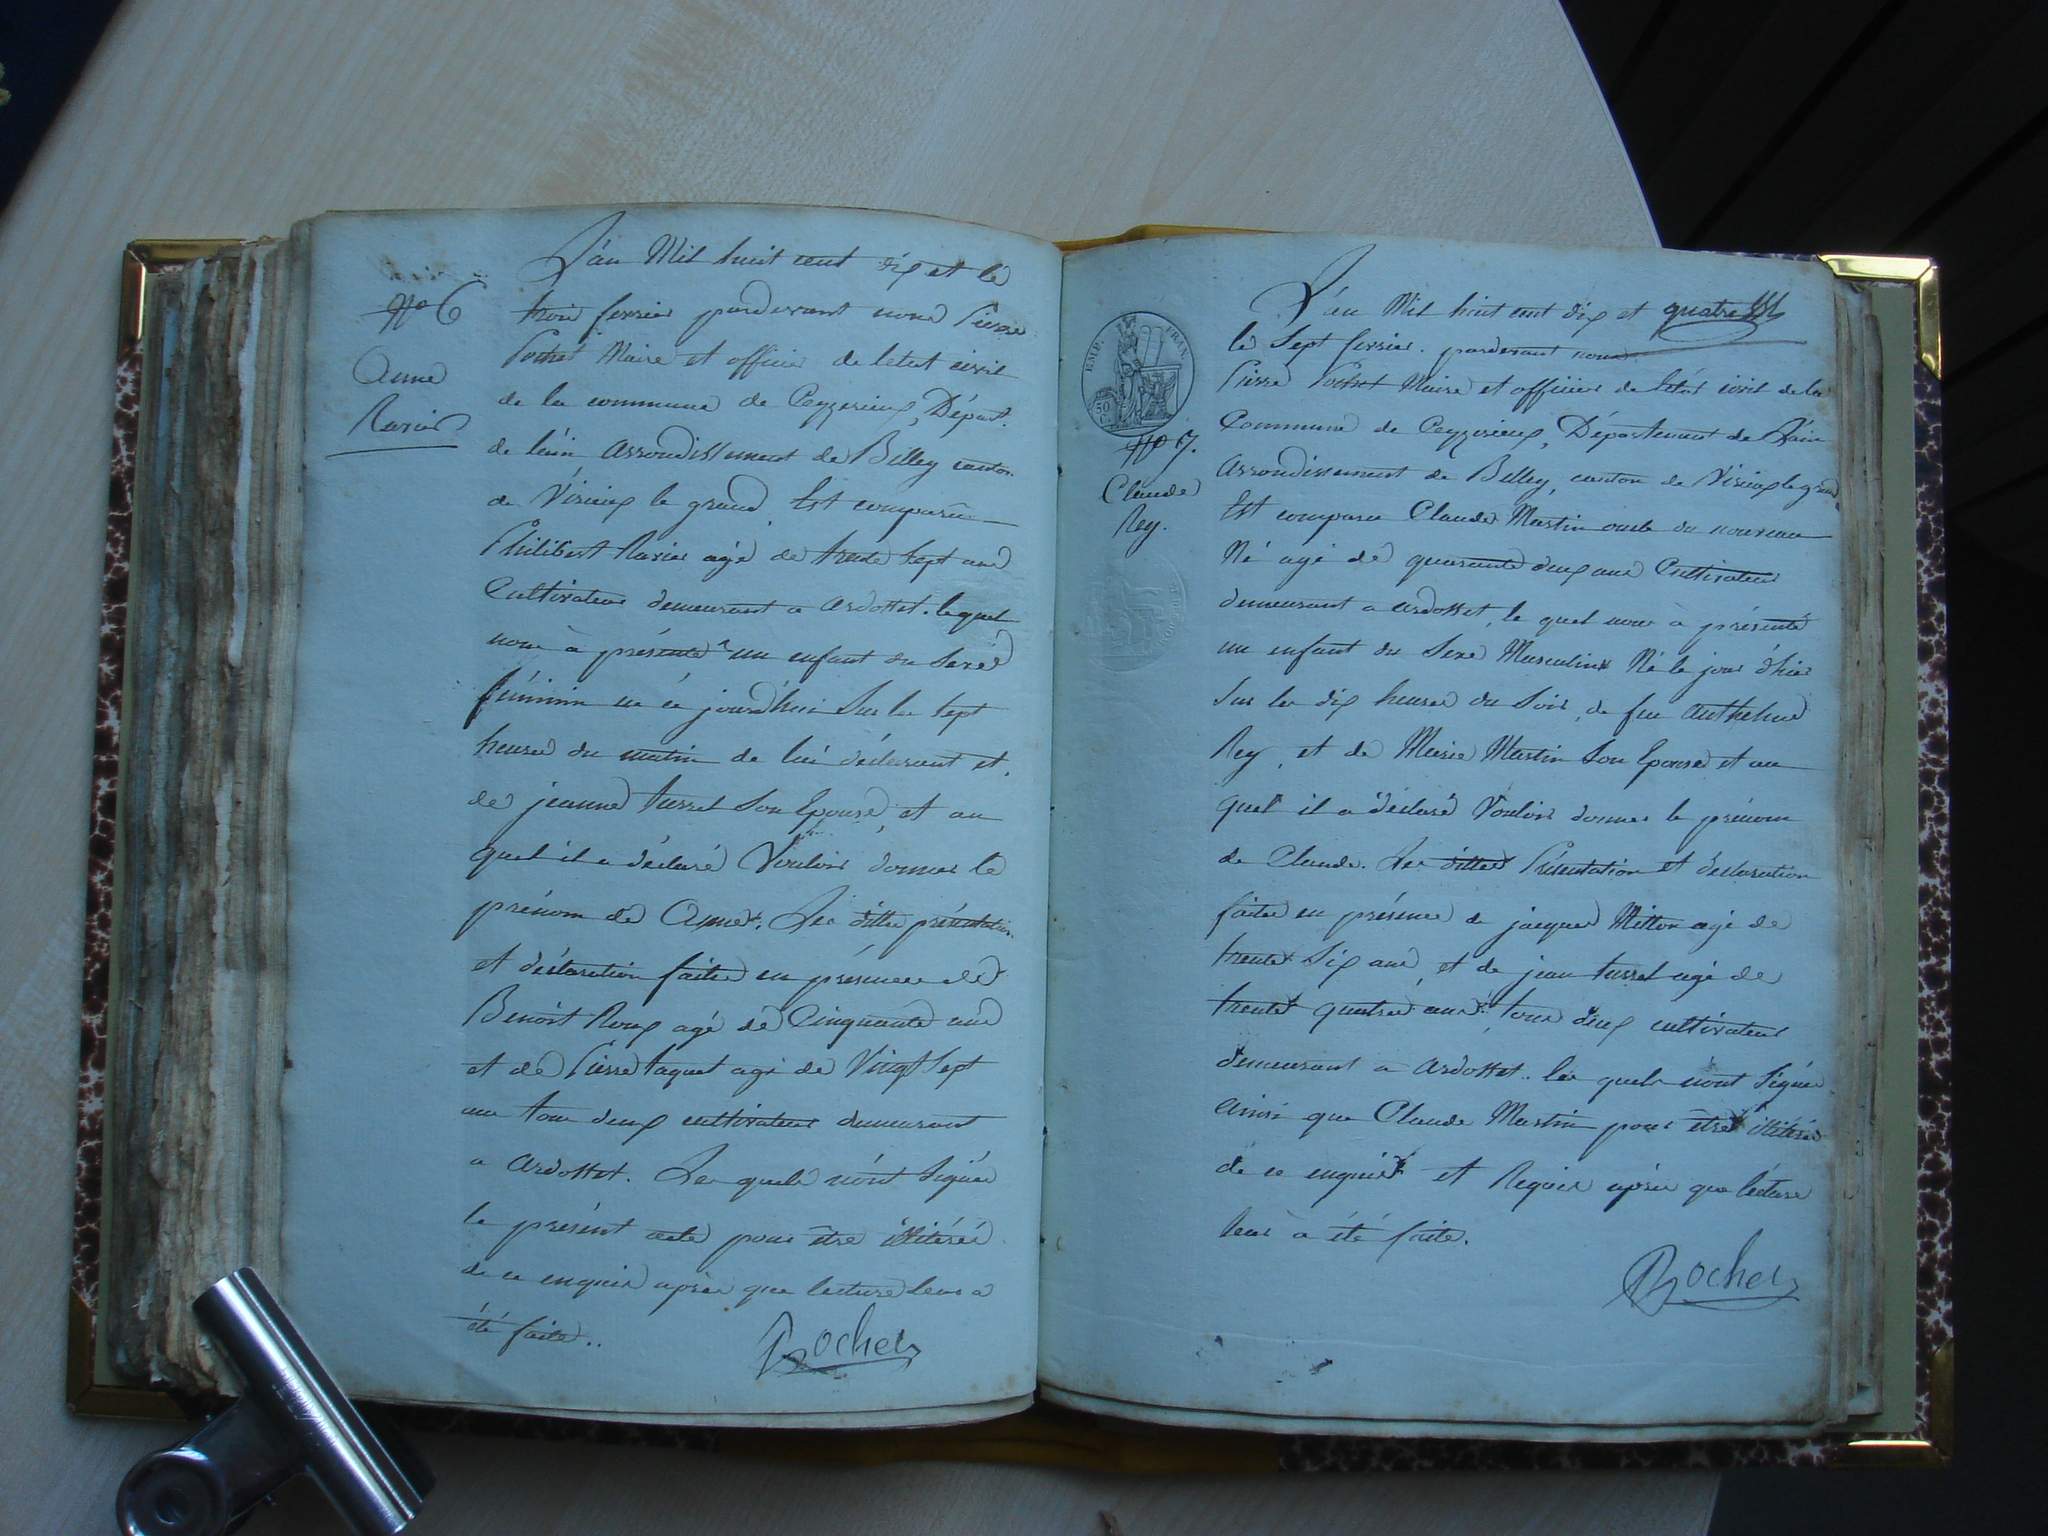 N° 6
Anne
Ravier
L'an Mil huit cent dix et le
trois fevrier pardevant nous Pierre
Pochet Maire et officier de letat civil
de la commune de Ceyzerieux, Départ.
de l'ain arrondissement de Belley canton
de Virieux le grand, Est comparu
Philibert Ravier agé de trente sept ans
Cultivateur demeurant a ardosset. lequel
nous à présenté un enfant du Sexe
féminin né ce jourd'hui Sur les sept
heures du matin de lui déclarant et
de jeanne turrel Son Epouse, et au
quel il a déclaré Vouloir donner le
prénom de Anne. Les dittes présentation
et déclaration faites en présence de
Benoit Roux agé de Cinquante ans
et de Pierre taquet agé de Vingt Sept
ans tous deux cultivateurs demeurant
a ardosset. Les quels n'ont Signés
le présent acte pour être illitérés
de ce enquis après que lecture leur a
été faite..
Rochet
EMP. FRAN.
50 C.
N° 7.
Claude
Rey.
L'an Mil huit cent dix et quatre
le Sept fevrier. pardevant nous
Pierre Pochet Maire et officier de l'état civil de la
Commune de Ceyzerieux, Département de L'ain
arrondissement de Belley, canton de Virieux le grand
Est comparu Claude Martin oncle du nouveau
Né agé de quarante deux ans Cultivateur
demeurant a ardosset, le quel nous à présenté
un enfant du Sexe Masculin Né le jour d'hier
Sur les dix heures du Soir, de feu anthelme
Rey, et de Marie Martin Son Epouse et au
quel il a déclaré Vouloir donner le prénom
de Claude. Les dittes Présentation et déclaration
faites en présence de jacques Mitton agé de
trente Six ans, et de jean turrel agé de
trente quatre ans tous deux cultivateurs
demeurant a ardosset.. les quels n'ont Signés
ainsi que Claude Martin pour être illitérés
de ce enquis et Requis après que lecture
leur à été faite.
Rochet